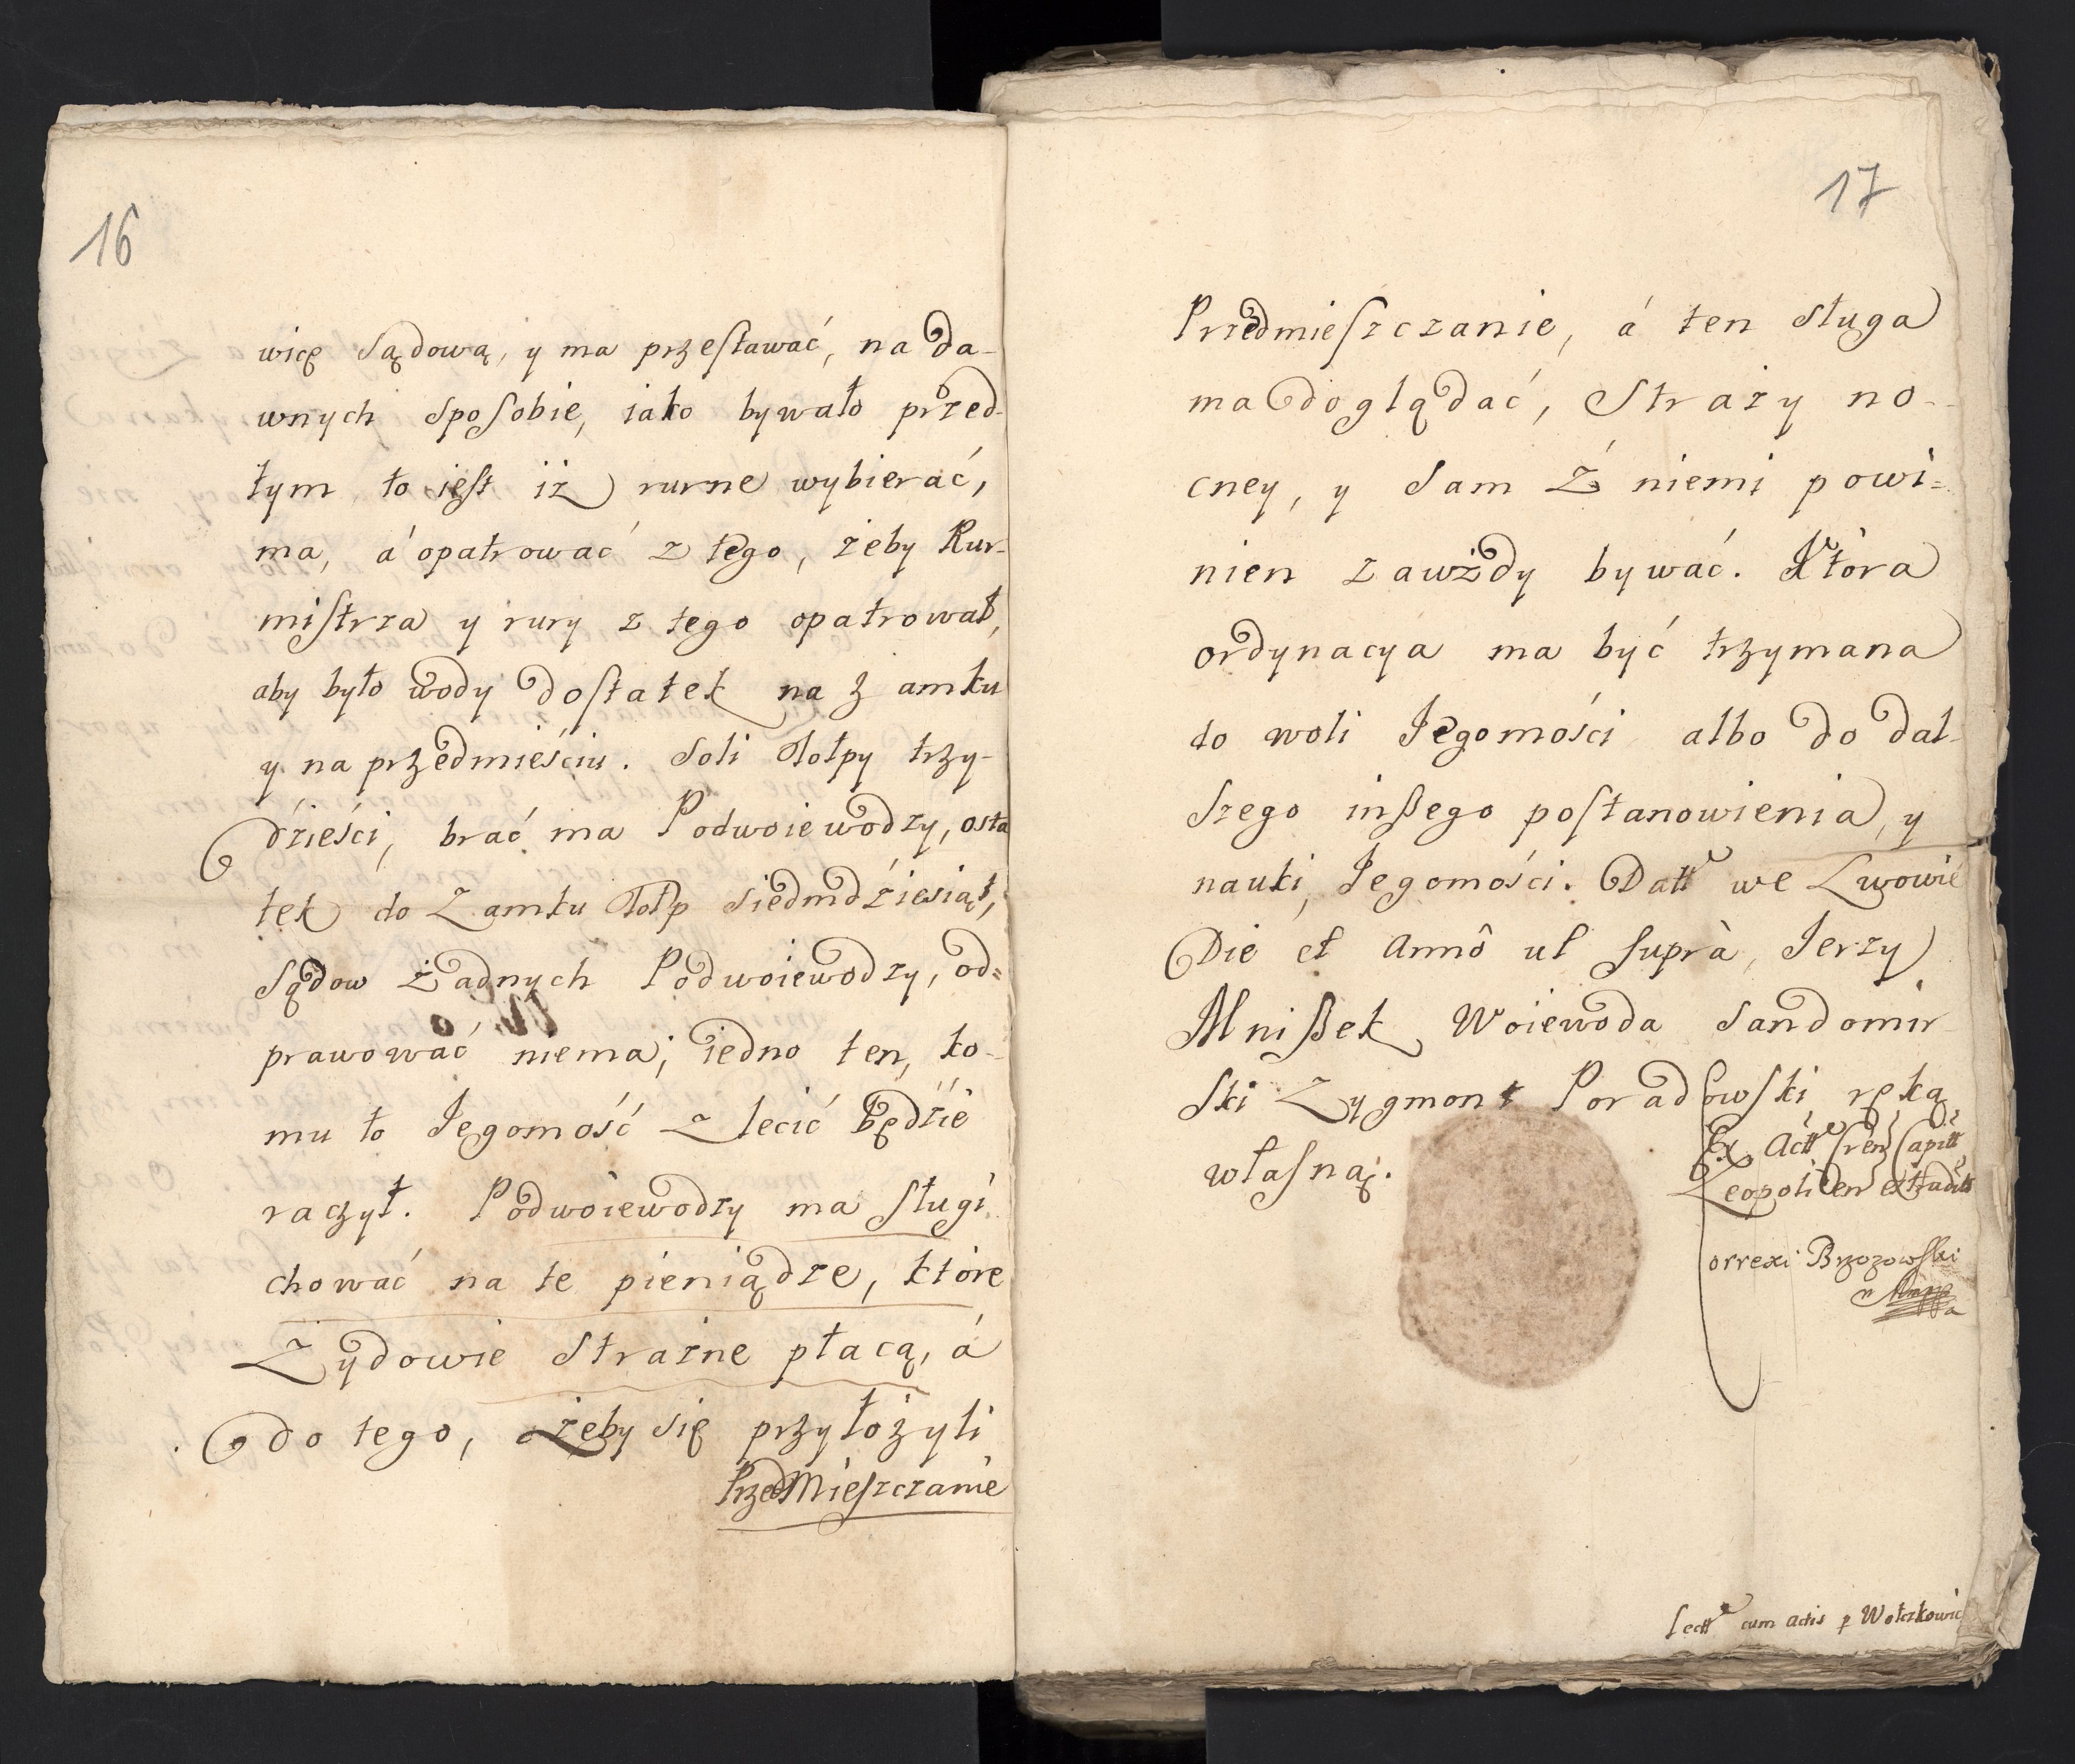 16
wicę Sądową, y ma przestawać, na da-
wnych Sposobie, iako bywało przed-
tym to iest iż rurne wybierać,
ma, á opatrować z tego, żeby Rur-
mistrza y rury z tego opatrował,
aby było wody dostatek na Zamku
y na przedmieściu. Soli Tołpy trzy-
dzieści, brać ma Podwoiewodzy, osta
tek do Zamku Tołp siedmdźiesiąt,
Sądow żadnych Podwoiewodzy, od=
prawować niema; iedno ten, ko-
mu to Jegomość Zlecić będzie
raczył. Podwoiewodzy ma sługi
chować na te pieniądze, które
Zydowie Strażne płacą, á
do tego, żeby się przyłożyli
PrzedMieszczanie
17
Przedmieszczanie, á ten Sługa
ma doglądać, Straży no-
cney, y Sam Z niemi powi=
nien zawżdy bywać. Która
ordynacya ma być trzymana
do woli Jegomości albo do dal-
szego inßego postanowienia, y
nauki, Jegomości. Datt we Lwowie
Die et Annô ut suprà, Jerzy
Mnißek Woiewoda Sandomir
ski Zygmont Poradowski ręką
własną.
Ex Actt Cren Capitt
Leopolien extradit
orrexi Brzozowski
Lectt cum Actis p Wołczkowic